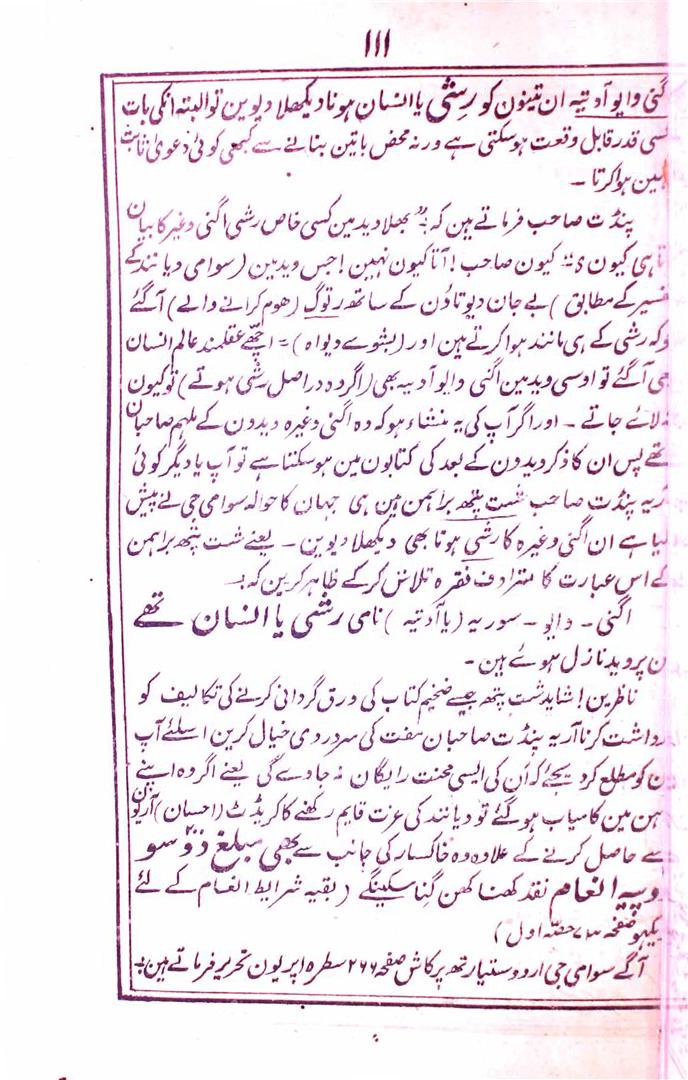 ۱۱۱
گنی وایو آدتیہ ان تینون کو رِشی یا انسان ہونا دیکھلا دیوین تو البتہ انکی بات
سی قدر قابل وقعت ہوسکتی ہے ورنہ محض باتین بنانے سے کبھی کوئی دعویٰ ثابت
ہین ہوا کرتا ۔
پنڈت صاحب فرماتے ہین کہ بھلا وید مین کسی خاص رشی اگنی وغیرکا بیان
تا ہی کیون کیون صاحب ! آتا کیون نہین ! جس وید مین (سوامی دیانند کے
سیر کے مطابق ) بے جان دیوتاؤن کے ساتھ رتوگ (ھوم کرانے والے) آگئے
وکہ رشی کے ہی مانند ہوا کرتے ہین اور (بشوے دیواہ) = اچھے عقلمند عالم انسان
ھی آگئے تو اوسی وید مین اگنی وایو آدتیہ بھی (اگر وہ دراصل رشی ہوتے) تو کیون
نہ لائے جاتے ۔ اور اگر آپ کی یہ منشاء ہو کہ وہ اگنی وغیرہ ویدون کے ملہم صاحبان
تھے پس ان کا ذکر ویدون کے بعد کی کتابون مین ہوسکتا ہے تو آپ یا دیگر کوئی
ریہ پنڈت صاحب شت پتھ براہمن مین ہی جہان کا حوالہ سوامی جی نے پیش
کیا ہے ان اگنی وغیرہ کا رشی ہونا بھی دیکھلا دیوین ۔ یعنے شت پتھ براہمن
کے اس عبارت کا مترادف فقرہ تلاش کرکے ظاہر کرین کہ :۔
اگنی ۔ وایو ۔ سوریہ (یا آدتیہ) نامی رشی یا انسان تھے
ن پر وید نازل ہوئے ہین ۔
ناظرین ! شاید شت پتھ جیسے ضخیم کتاب کی ورق گردانی کرنے کی تکالیف کو
رداشت کرنا آریہ پنڈت صاحبان مفت کی سردردی خیال کرین اسلئے آپ
ن کو مطلع کردیجئے کہ اُن کی ایسی محنت رایگان نہ جاوے گی یعنے اگر وہ اپنے
ہن مین کامیاب ہوگئے تو دیانند کی عزت قایم رکھنے کا کریڈٹ (احسان) آریون
سے حاصل کرنے کے علاوہ وہ خاکسار کی جانب سے بھی مبلغ دو سو
روپیہ انعام نقد کھنا کھن گنا سکینگے (بقیہ شرایط انعام کے لئے
یکھو صفحہ ۷۳ حصہ اول)
آگے سوامی جی اردو ستیارتھ پرکاش صفحہ ۲۶۶ سطر ۱۵ پر یون تحریر فرماتے ہین :۔